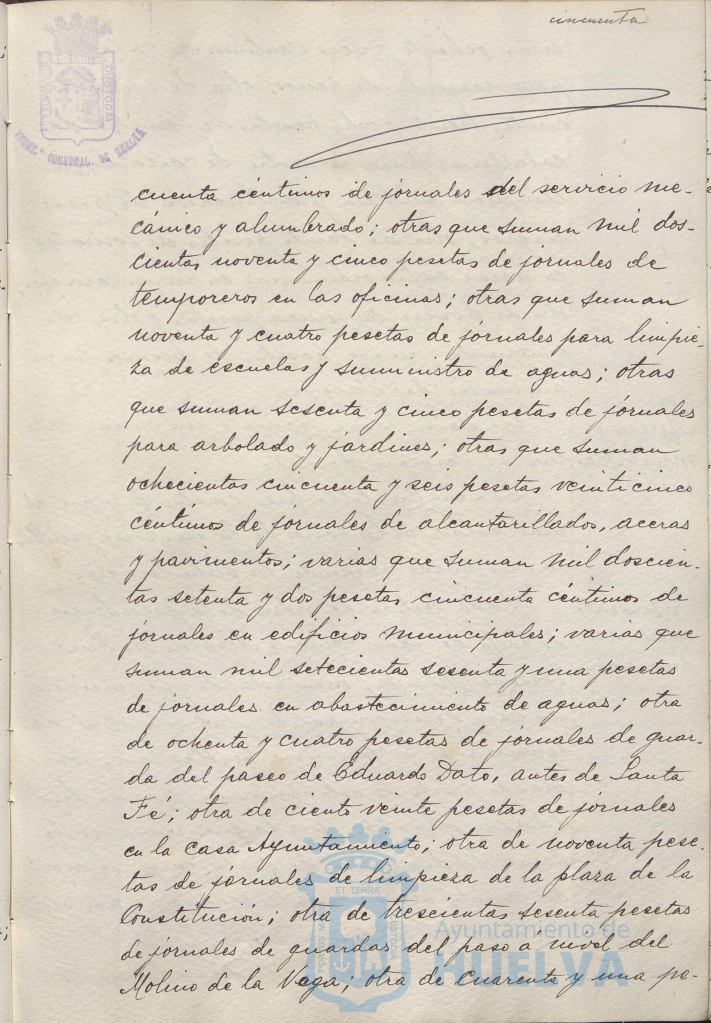 cincuenta
AYUNT.º CONSTNAL. DE HUELVA
cuenta céntimos de jornales del servicio me-
cánico y alumbrado; otras que suman mil dos-
cientas noventa y cinco pesetas de jornales de
temporeros en las oficinas; otras que suman
noventa y cuatro pesetas de jornales para limpie-
za de escuelas y suministro de aguas; otras
que suman sesenta y cinco pesetas de jornales
para arbolado y jardines; otras que suman
ochecientas cincuenta y seis pesetas veinticinco
céntimos de jornales de alcantarillados, aceras
y pavimentos; varias que suman mil doscien-
tas setenta y dos pesetas cincuenta céntimos de
jornales en edificios municipales; varias que
suman mil setecientas sesenta y una pesetas
de jornales en abastecimiento de aguas; otra
de ochenta y cuatro pesetas de jornales de guar-
da del paseo de Eduardo Dato, antes de Santa
Fé; otra de ciento veinte pesetas de jornales
en la casa Ayuntamiento; otra de noventa pese-
tas de jornales de limpieza de la plaza de la
Constitución; otra de trescientas sesenta pesetas
de jornales de guardas del paso á nivel del
Molino de la Vega; otra de cuarenta y una pe-
ET TERRA
Ayuntamiento de
HUELVA